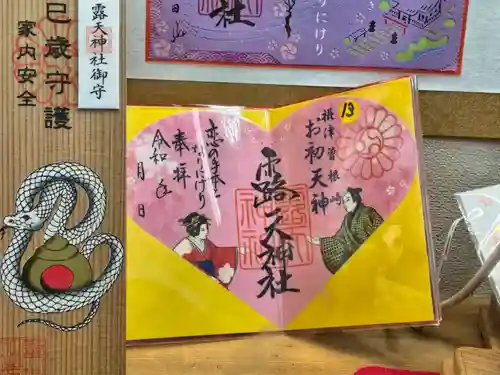 巳歳守護
家内安全
露天神社御守
社
にけり
13
摂津 曽根崎
お初天神
露天神社
恋の手本と
なりにけり
奉拝
令和 年
月 日